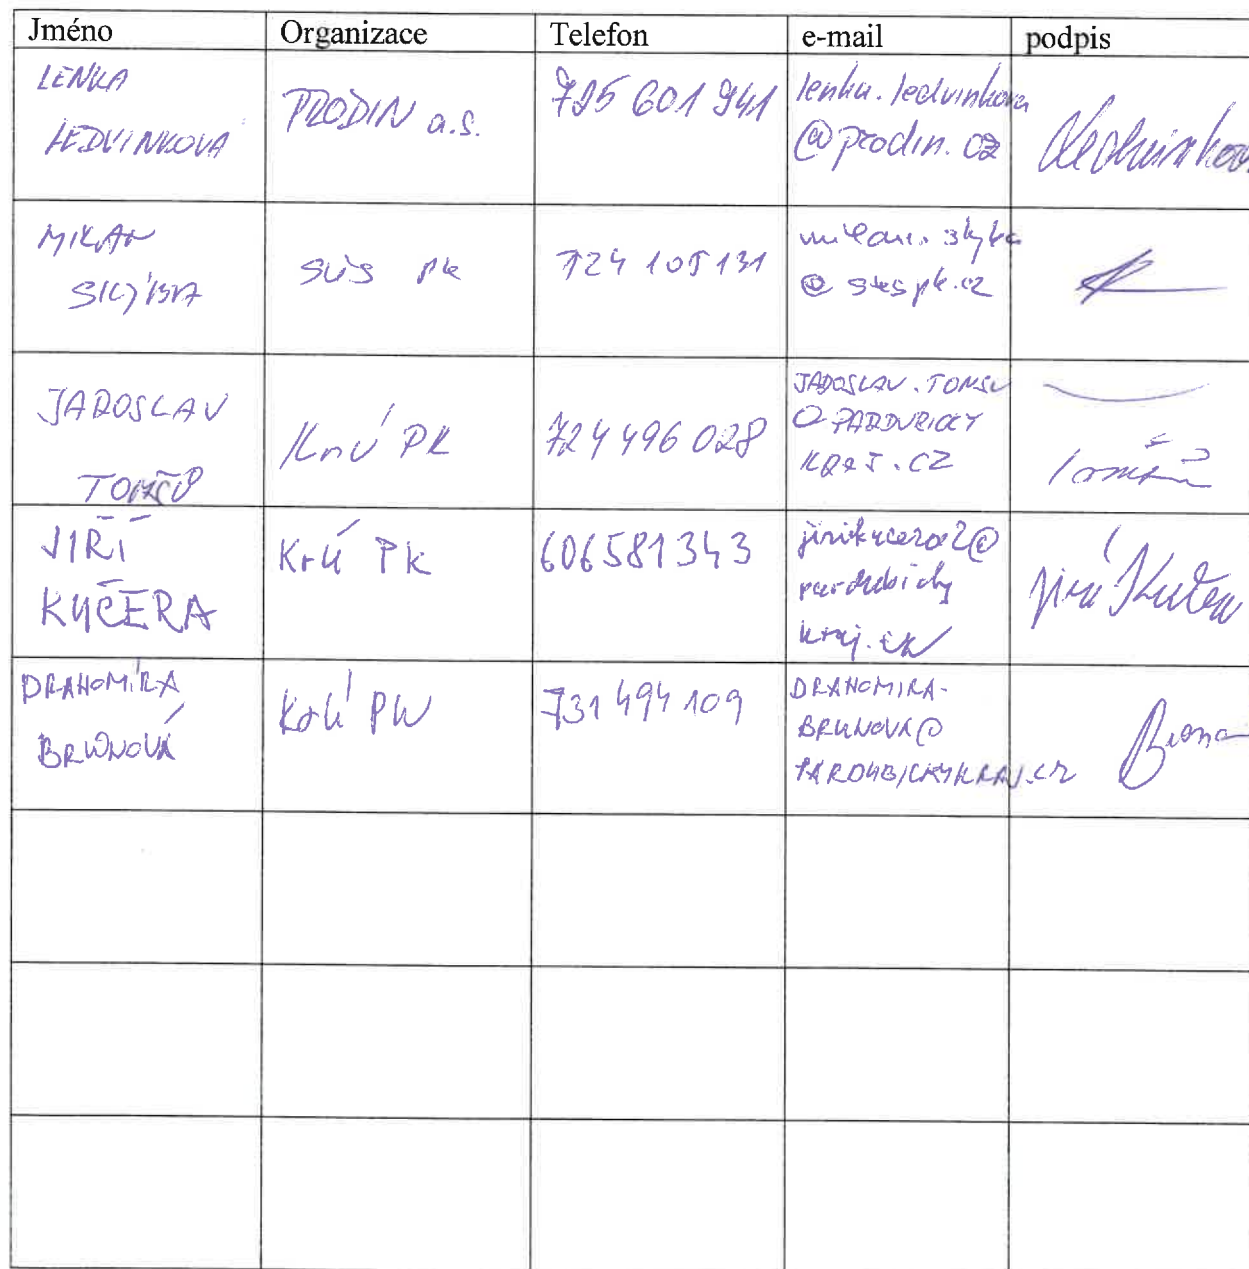 Jméno Organizace Telefon e-mail podpis
LENKA
LEDVINKOVÁ
PRODIN a.s.
725 601 941
lenka.ledvinkova
@prodin.cz
MILAN
SÚS PK
724 105 131
milan.skyba
@suspk.cz
JAROSLAV
TOMŠŮ
KrÚ PK
724 496 028
JAROSLAV.TOMSU
@ PARDUBICKY
KRAJ.CZ
JIŘÍ
KUČERA
KrÚ Pk
606581343
pardubicky
kraj.cz
Jiří Kučera
DRAHOMÍRA
BRUNOVÁ
KrÚ PK
731 494 109
DRAHOMIRA.
BRUNOVA@
PARDUBICKYKRAJ.CZ